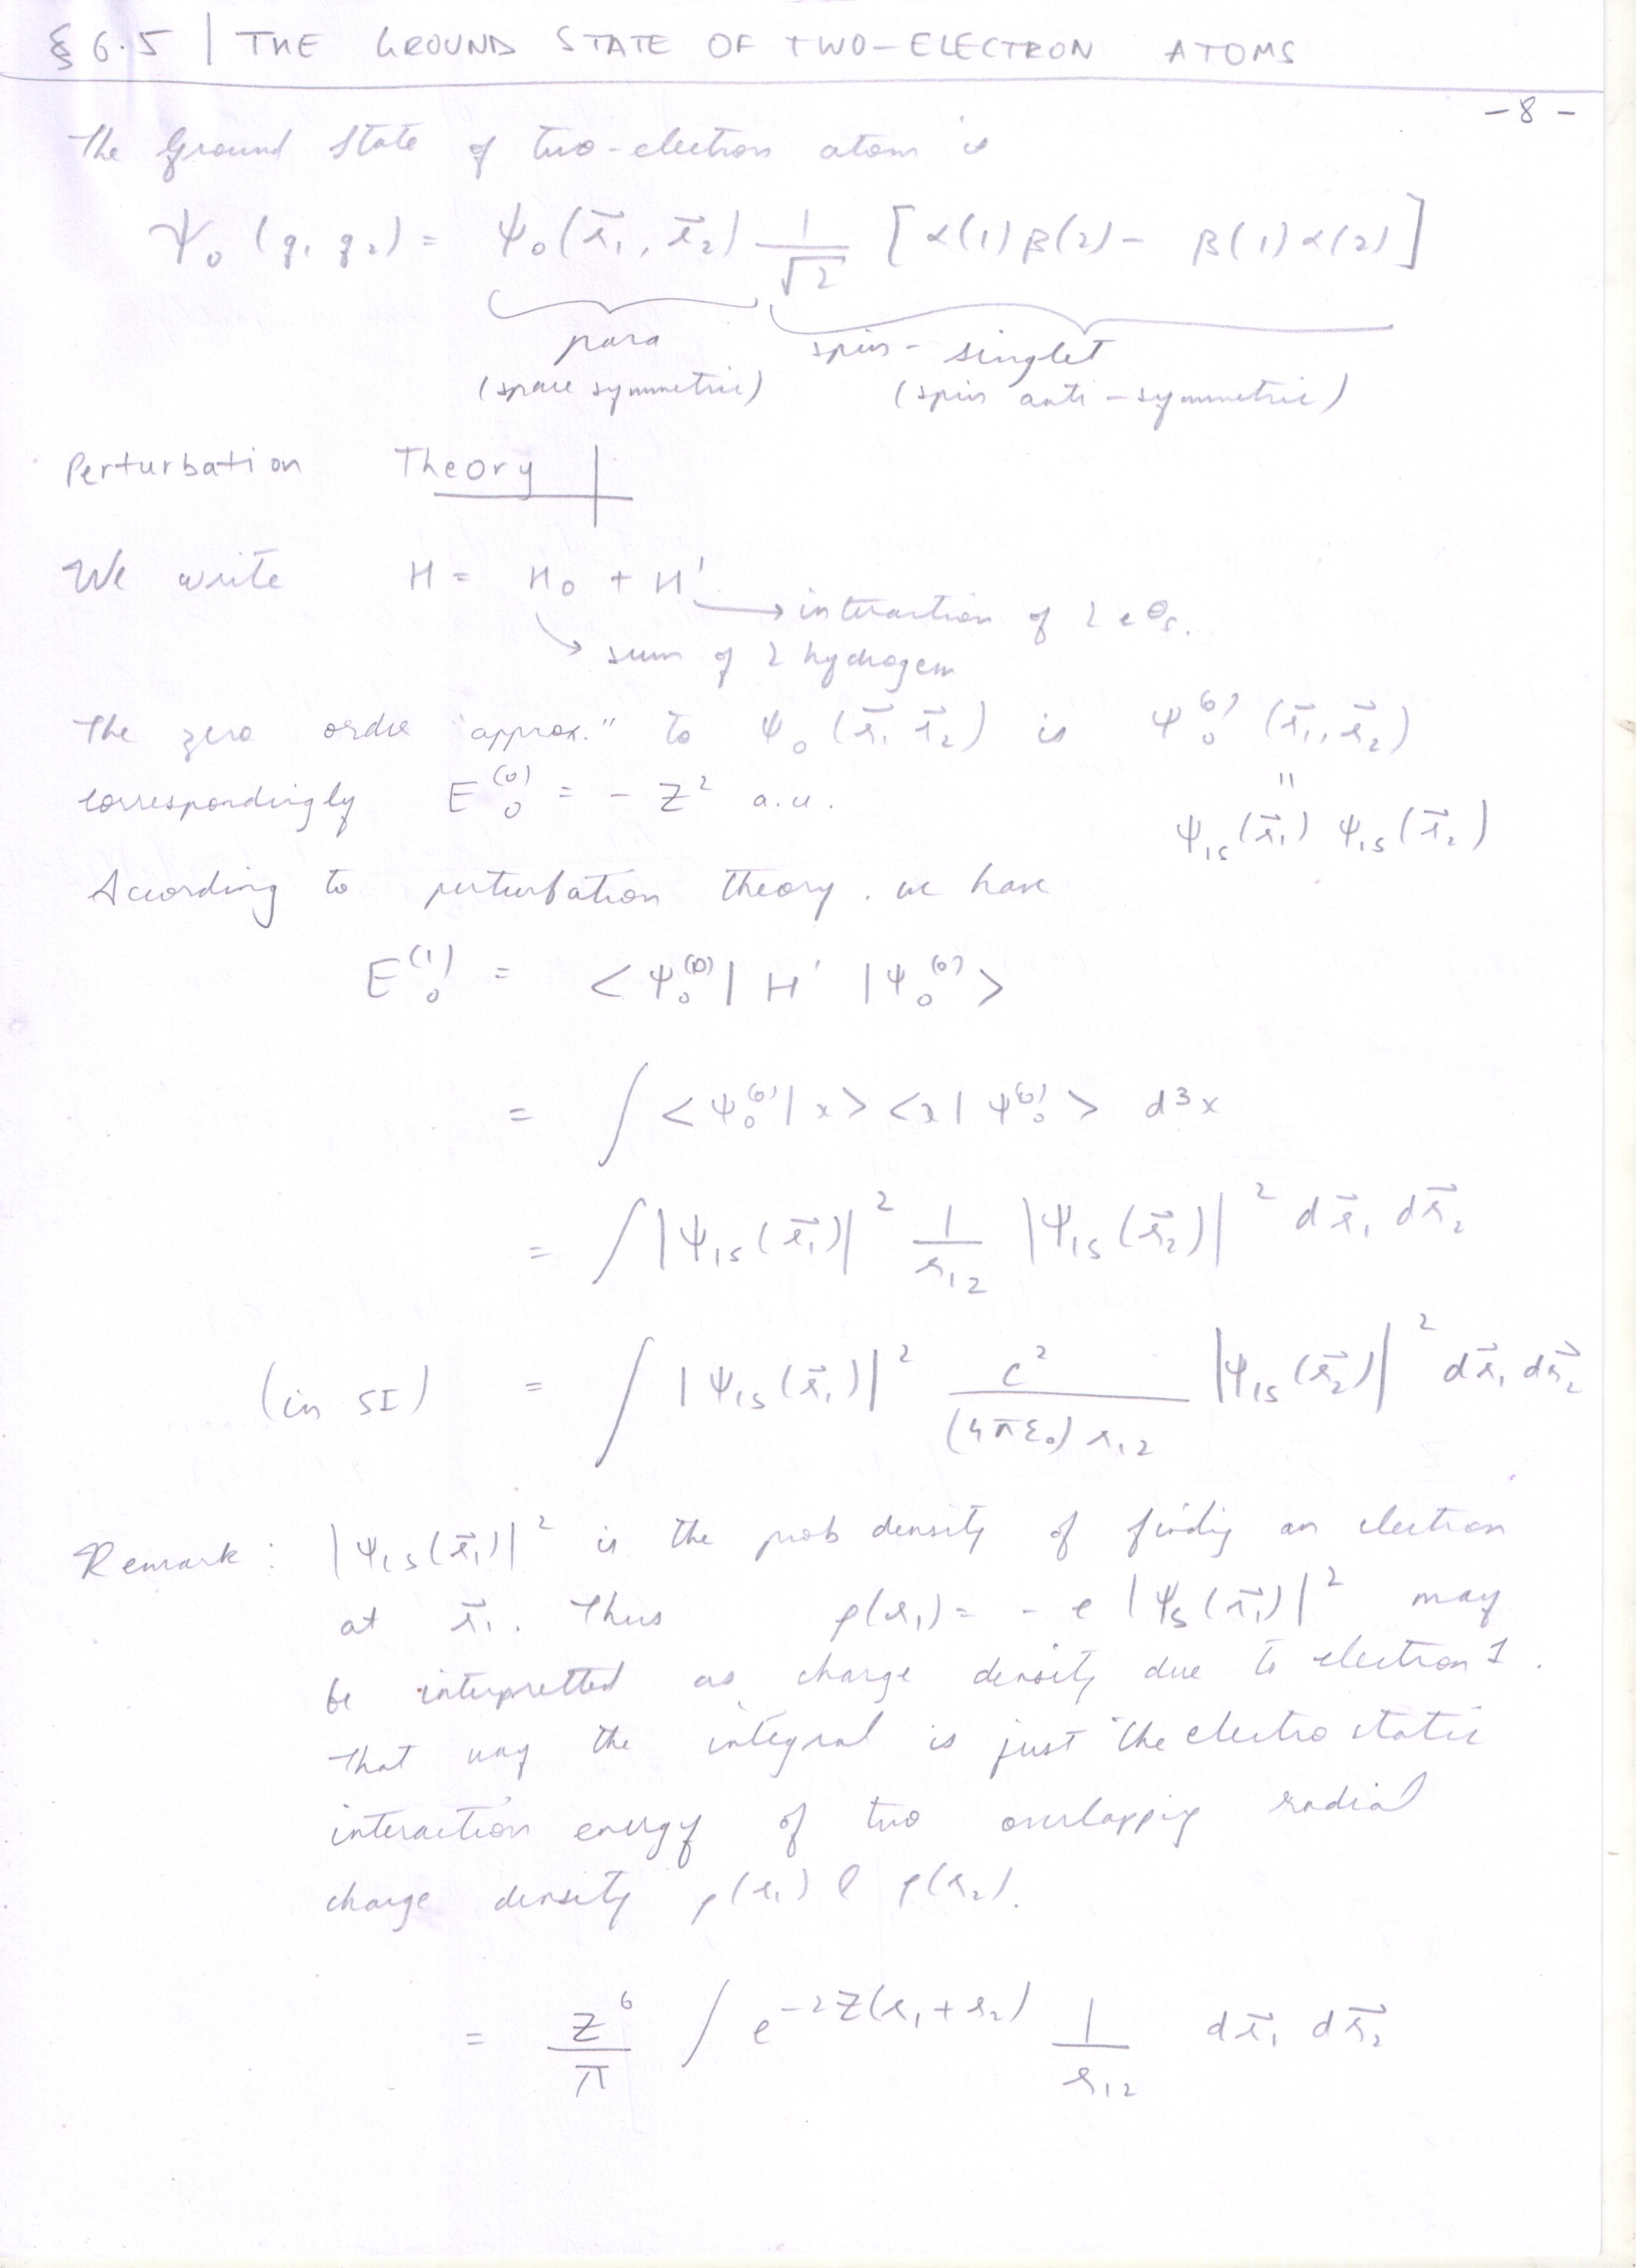 § 6.5 | THE GROUND STATE OF TWO-ELECTRON ATOMS
-8-
The Ground State of two-electron atom is
Ψ₀ (q₁ q₂) = ψ₀(r⃗₁, r⃗₂) 1/√2 [α(1)β(2) - β(1)α(2)]
para spin-singlet
(space symmetric) (spin anti-symmetric)
Perturbation Theory
We write H = H₀ + H'
→ interaction of 2 e⊖s.
↘ sum of 2 hydrogen
The zero order "approx." to ψ₀(r⃗₁ r⃗₂) is ψ₀⁽⁰⁾ (r⃗₁, r⃗₂)
correspondingly E₀⁽⁰⁾ = - Z² a.u. "
ψ₁s(r⃗₁) ψ₁s(r⃗₂)
According to perturbation theory. we have
E₀⁽¹⁾ = <ψ₀⁽⁰⁾| H' |ψ₀⁽⁰⁾>
= ∫ <ψ₀⁽⁰⁾|x> <x|ψ₀⁽⁰⁾> d³x
= ∫ |ψ₁s(r⃗₁)|² 1/r₁₂ |ψ₁s(r⃗₂)|² dr⃗₁ dr⃗₂
(in SI) = ∫ |ψ₁s(r⃗₁)|² c²/(4πε₀) r₁₂ |ψ₁s(r⃗₂)|² dr⃗₁ dr⃗₂
Remark: |ψ₁s(r⃗₁)|² is the prob density of finding an electron
at r⃗₁. Thus ρ(r₁) = - e |ψs(r⃗₁)|² may
be interpretted as charge density due to electron 1.
That way the integral is just the electro static
interaction energy of two overlapping radial
charge density ρ(r₁) & ρ(r₂).
= Z⁶/π ∫ e^-2Z(r₁+r₂) 1/r₁₂ dr⃗₁ dr⃗₂